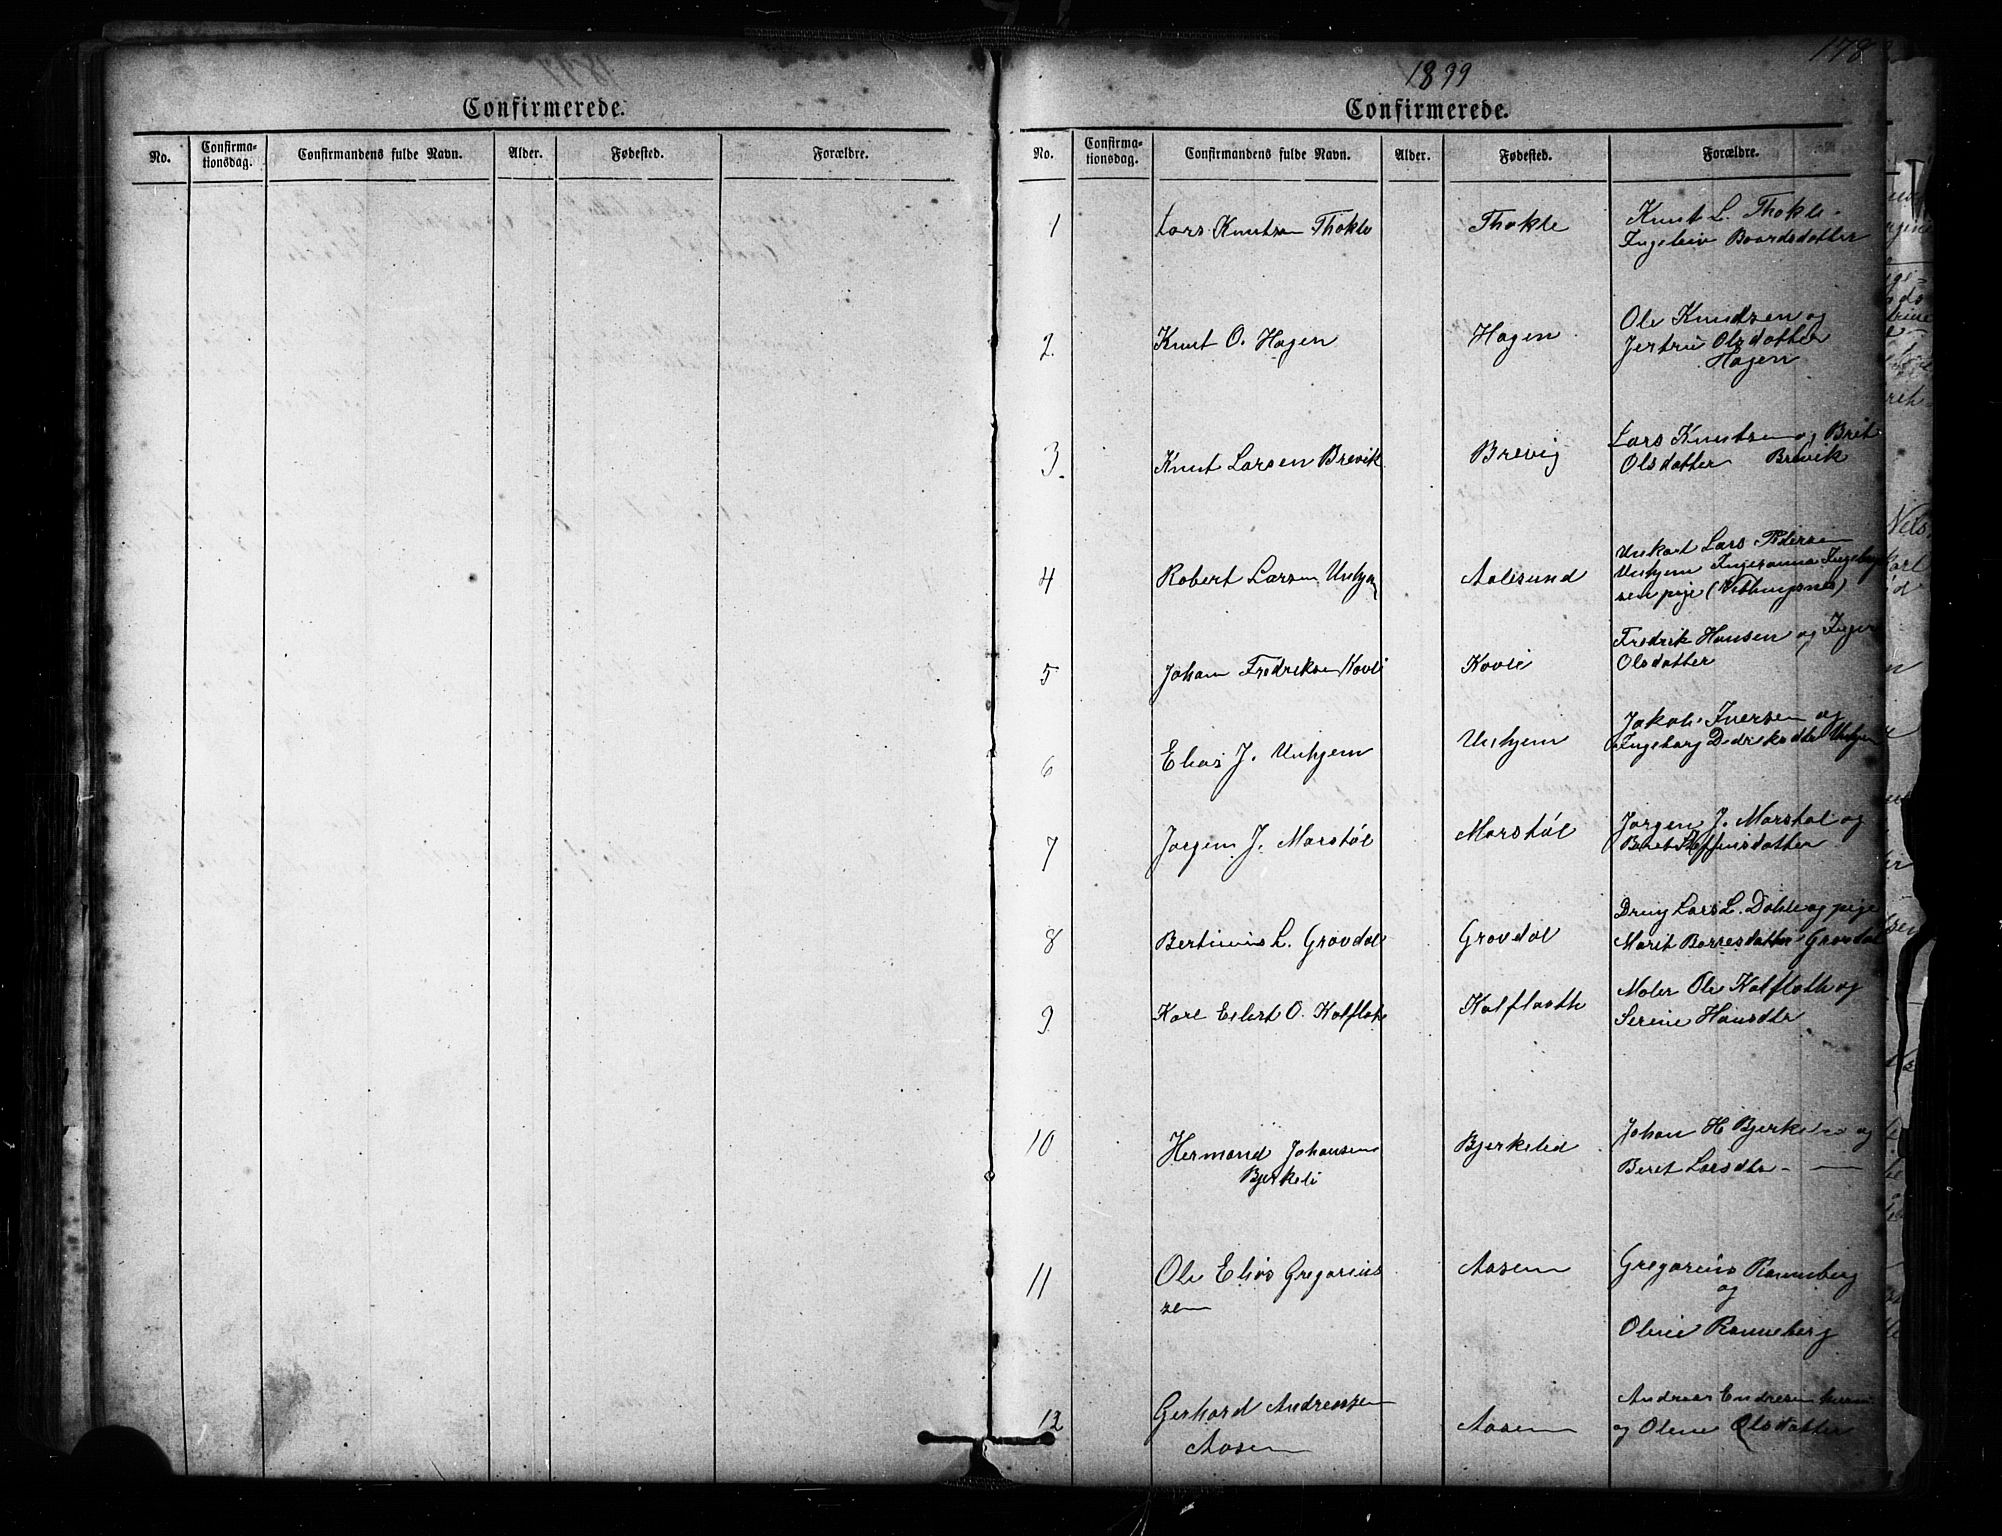 Confirmerede.
No. Confirma-tionsdag. Confirmandens fulde Navn. Alder. Fødested. Forældre.
178
1899
Confirmerede.
No. Confirma-tionsdag. Confirmandens fulde Navn. Alder. Fødested. Forældre.
1 Lars Knutsen Thokle Thokle Knut L. Thokle
Ingeleiv Baardsdatter
2 Knut O. Hagen Hagen Ole Knudsen og
Jertrue Olsdatter
Hagen
3 Knut Larsen Brevik Brevig Lars Knutsen og Brit
Olsdatter Brevik
4 Robert Larsen Unhjem Aalesund Unkarl Lars Pedersen
Unhjem
pige
5 Johan Fredriksen Kovli Kovli Fredrik Hansen og
Olsdatter
6 Elias J. Unhjem Unhjem Jakob Iversen og
Ingeborg Unhjem
7 Jørgen J. Marstøl Marstøl Jørgen J. Marstøl og
Beret Steffensdatter
8 Bertinus L. Grøvdal Grøvdal Dreng Lars L. Dahle og pige
Marit Grøvdal
9 Karl Eilert O. Kalflath Kalflaath Maler Ole Kalflath og
Serine Hansdtr
10 Hermand Johansen
Bjerkeli Bjerkelid Johan H Bjerkeli og
Beret Larsdtr
11 Ole Elias Gregorius
sen Aasen Gregorius Ranneberg
og
Oline Ranneberg
12 Gerhard Andreassen
Aasen Aasen Andreas Endresen
og Oline Olsdatter